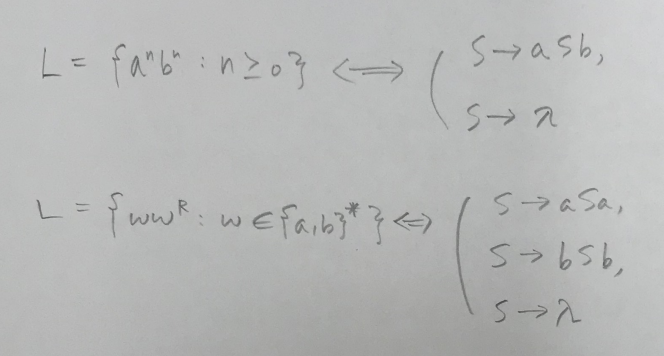 L = {aⁿbⁿ : n ≥ 0} ⟺ ( S → aSb,
S → λ
L = {wwᴿ : w ∈ {a,b}*} ⟺ ( S → aSa,
S → bSb,
S → λ